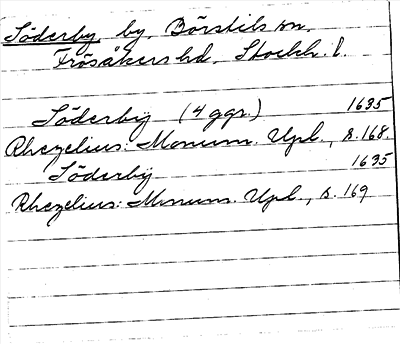 Söderby, by, Börstils sn.
Frösåkers hd. Stockh. l.
Söderbÿ (4 ggr.) 1635
Rhezelius: Monum. Upl., s. 168.
Söderbÿ 1635
Rhezelius: Monum. Upl., s. 169